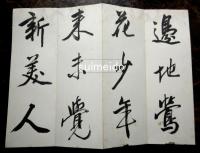 邊地鶯
花少年
来未覺
新美人
suimeido